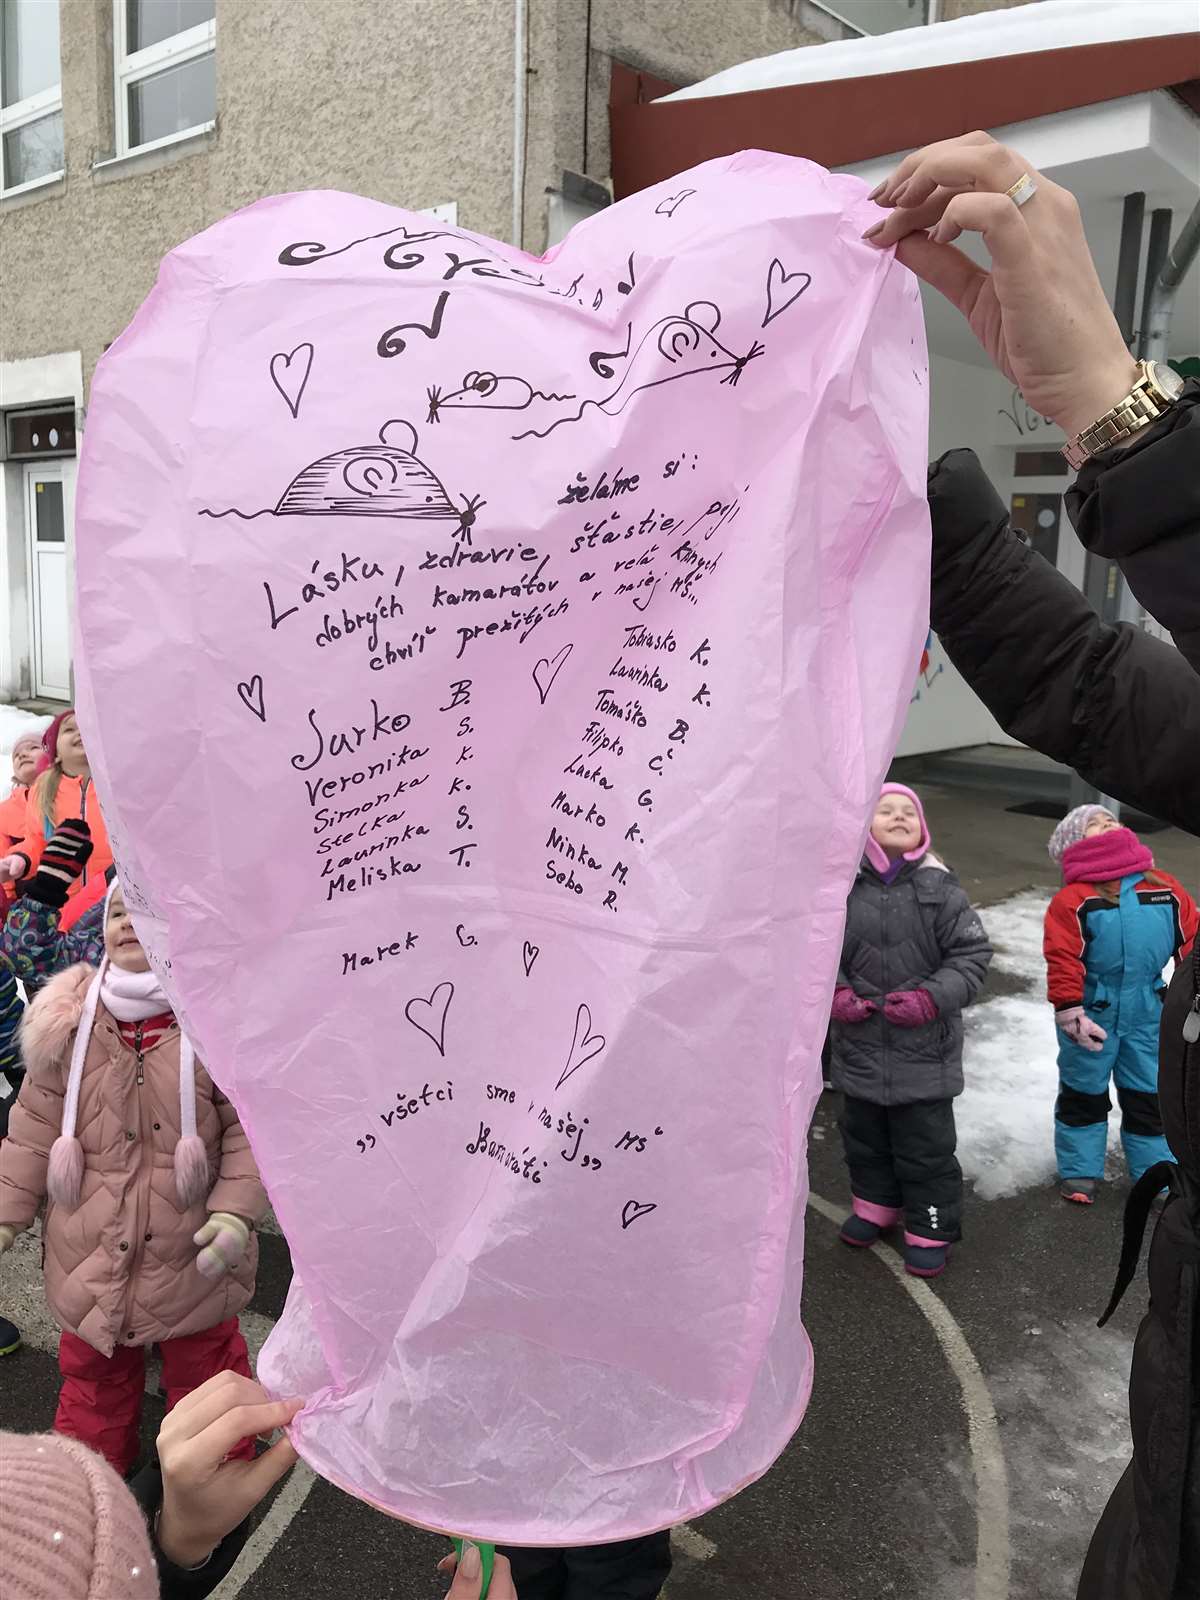 želáme si:
Lásku, zdravie, šťastie,
dobrých kamarátov a veľa
chvíľ prežitých v našej MŠ...
Jurko B.
Veronika S.
Simonka K.
Stelka K.
Laurinka S.
Meliska T.
Tobiasko K.
Laurinka K.
Tomáško B.
Filipko Č.
Lucka G.
Marko K.
Ninka M.
Sebo R.
Marek C.
„všetci sme v našej MŠ
Kamaráti